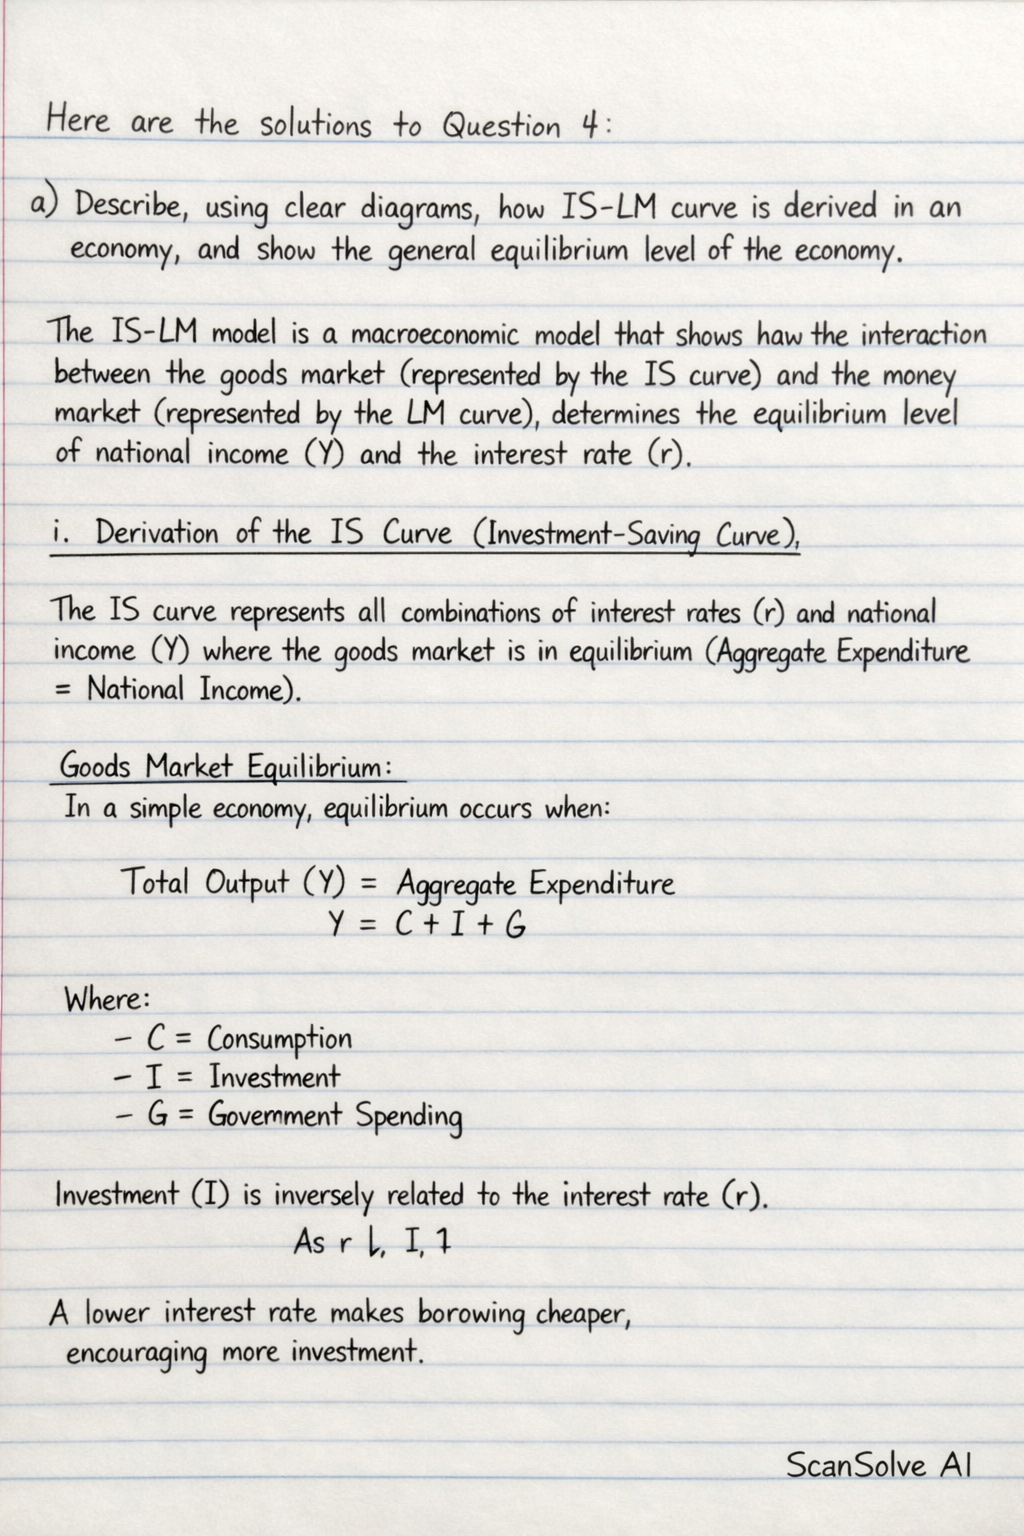 Here are the solutions to Question 4:
a) Describe, using clear diagrams, how IS-LM curve is derived in an
economy, and show the general equilibrium level of the economy.
The IS-LM model is a macroeconomic model that shows haw the interaction
between the goods market (represented by the IS curve) and the money
market (represented by the LM curve), determines the equilibrium level
of national income (Y) and the interest rate (r).
i. Derivation of the IS Curve (Investment-Saving Curve),
The IS curve represents all combinations of interest rates (r) and national
income (Y) where the goods market is in equilibrium (Aggregate Expenditure
= National Income).
Goods Market Equilibrium:
In a simple economy, equilibrium occurs when:
Total Output (Y) = Aggregate Expenditure
Y = C + I + G
Where:
- C = Consumption
- I = Investment
- G = Government Spending
Investment (I) is inversely related to the interest rate (r).
As r ↓, I, 1
A lower interest rate makes borrowing cheaper,
encouraging more investment.
ScanSolve AI